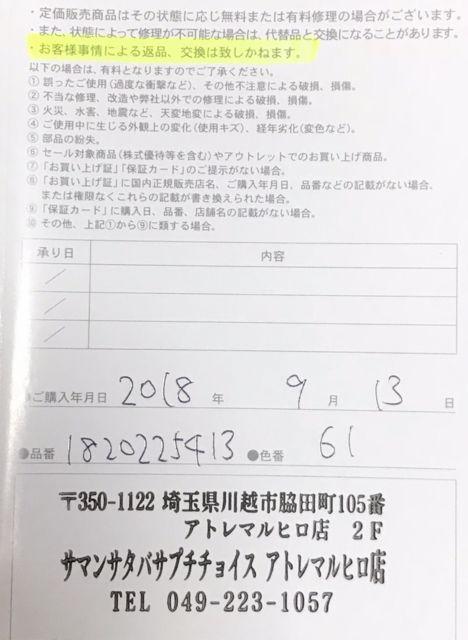 ・定価販売商品はその状態に応じ無料または有料修理の場合がございます。
・また、状態によって修理が不可能な場合は、代替品と交換になることがあります。
・お客様事情による返品、交換は致しかねます。
以下の場合は、有料となりますのでご了承ください。
① 誤ったご使用(過度な衝撃など)、その他不注意による破損、損傷。
② 不当な修理、改造や弊社以外での修理による破損、損傷。
③ 火災、水害、地震など、天変地変による破損、損傷。
④ ご使用中に生じる外観上の変化(使用キズ)、経年劣化(変色など)。
⑤ 部品の紛失。
⑥ セール対象商品(株式優待等を含む)やアウトレットでのお買い上げ商品。
⑦「お買い上げ証」「保証カード」のご提示がない場合。
⑧「お買い上げ証」に国内正規販売店名、ご購入年月日、品番などの記載がない場合、
または権限なくこれらの記載が書き換えられた場合。
⑨「保証カード」に購入日、品番、店舗名の記載がない場合。
⑩ その他、上記①から⑨に類する場合。
承り日 内容
/
/
/
●ご購入年月日 2018 年 9 月 13 日
●品番 1820225413 ●色番 61
〒350-1122 埼玉県川越市脇田町105番
アトレマルヒロ店 2F
サマンサタバサプチチョイス アトレマルヒロ店
TEL 049-223-1057